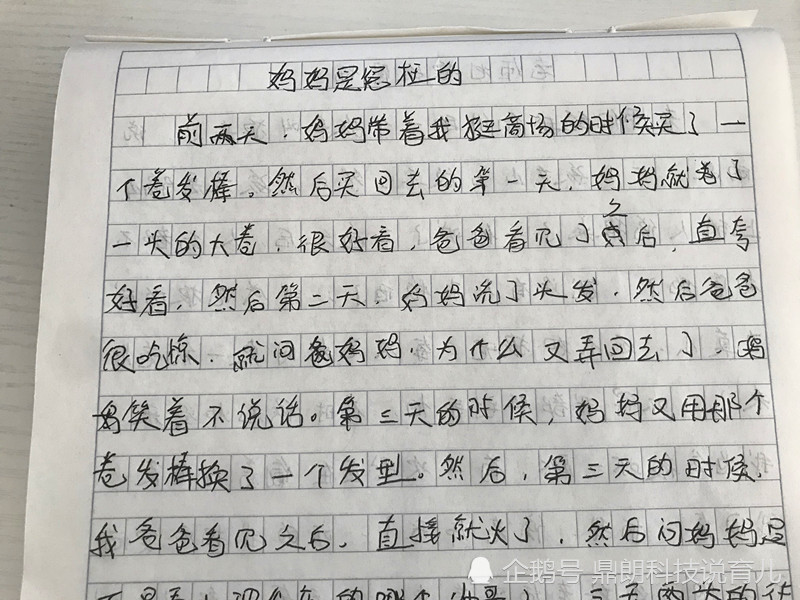 妈妈是冤枉的
前两天,妈妈带着我逛商场的时候买了一
个卷发棒。然后买回去的第一天,妈妈就卷了
一头的大卷,很好看,爸爸看见了之后,直夸
好看,然后第二天,妈妈洗了头发,然后爸爸
很吃惊,就问妈妈,为什么又弄回去了,妈
妈笑着不说话。第三天的时候,妈妈又用那个
卷发棒换了一个发型。然后,第三天的时候,
我爸爸看见之后,直接就火了,然后问妈妈是
不是
企鹅号 鼎朗科技说育儿